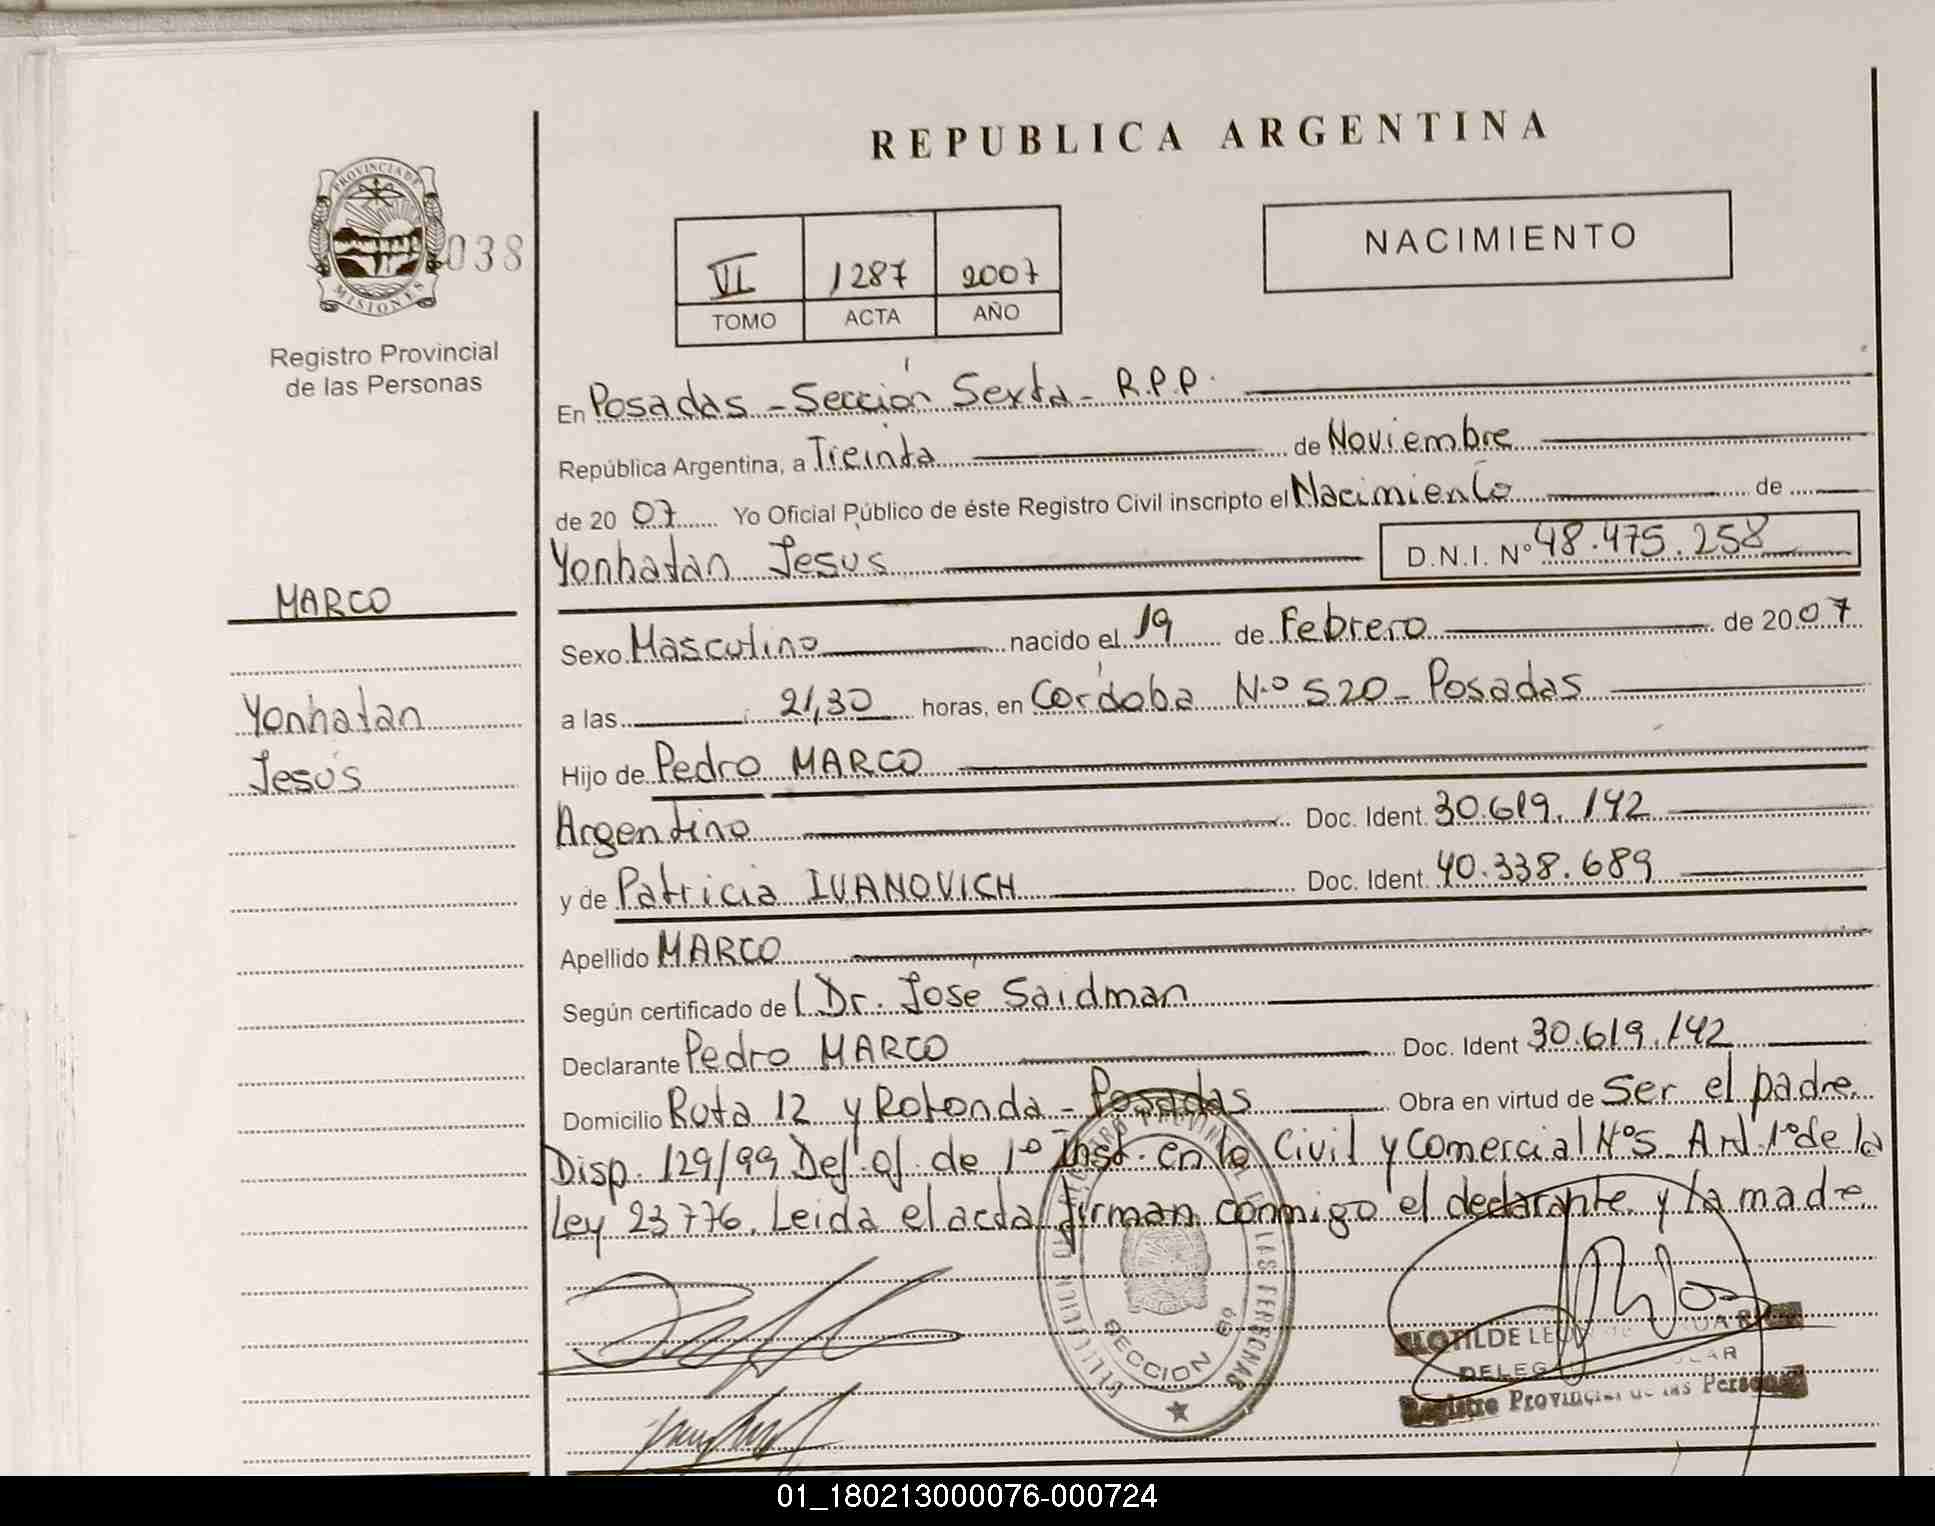 REPUBLICA ARGENTINA
PROVINCIA DE
MISIONES
038
Registro Provincial
de las Personas
VI 1287 2007
TOMO ACTA AÑO
NACIMIENTO
MARCO
Yonhatan
Jesús
En Posadas - Sección Sexta - R.P.P.
República Argentina, a Treinta de Noviembre
de 20 07 Yo Oficial Público de éste Registro Civil inscripto el Nacimiento de
Yonhatan Jesús D.N.I. Nº 48.475.258
Sexo Masculino nacido el 19 de Febrero de 2007
a las 21,30 horas, en Córdoba N.º 520 - Posadas
Hijo de Pedro MARCO
Argentino Doc. Ident. 30.619.142
y de Patricia IVANOVICH Doc. Ident. 40.338.689
Apellido MARCO
Según certificado de l Dr. Jose Saidman
Declarante Pedro MARCO Doc. Ident 30.619.142
Domicilio Ruta 12 y Rotonda - Posadas Obra en virtud de Ser el padre.
Disp. 129/99 Def. of. de 1º Inst. en lo Civil y Comercial Nº5. Art. 1º de la
Ley 23776. Leida el acta firman conmigo el declarante y la madre
SECCION 6ª
LAS PERSONAS
CLOTILDE
Registro Provincial de las Personas
01_180213000076-000724